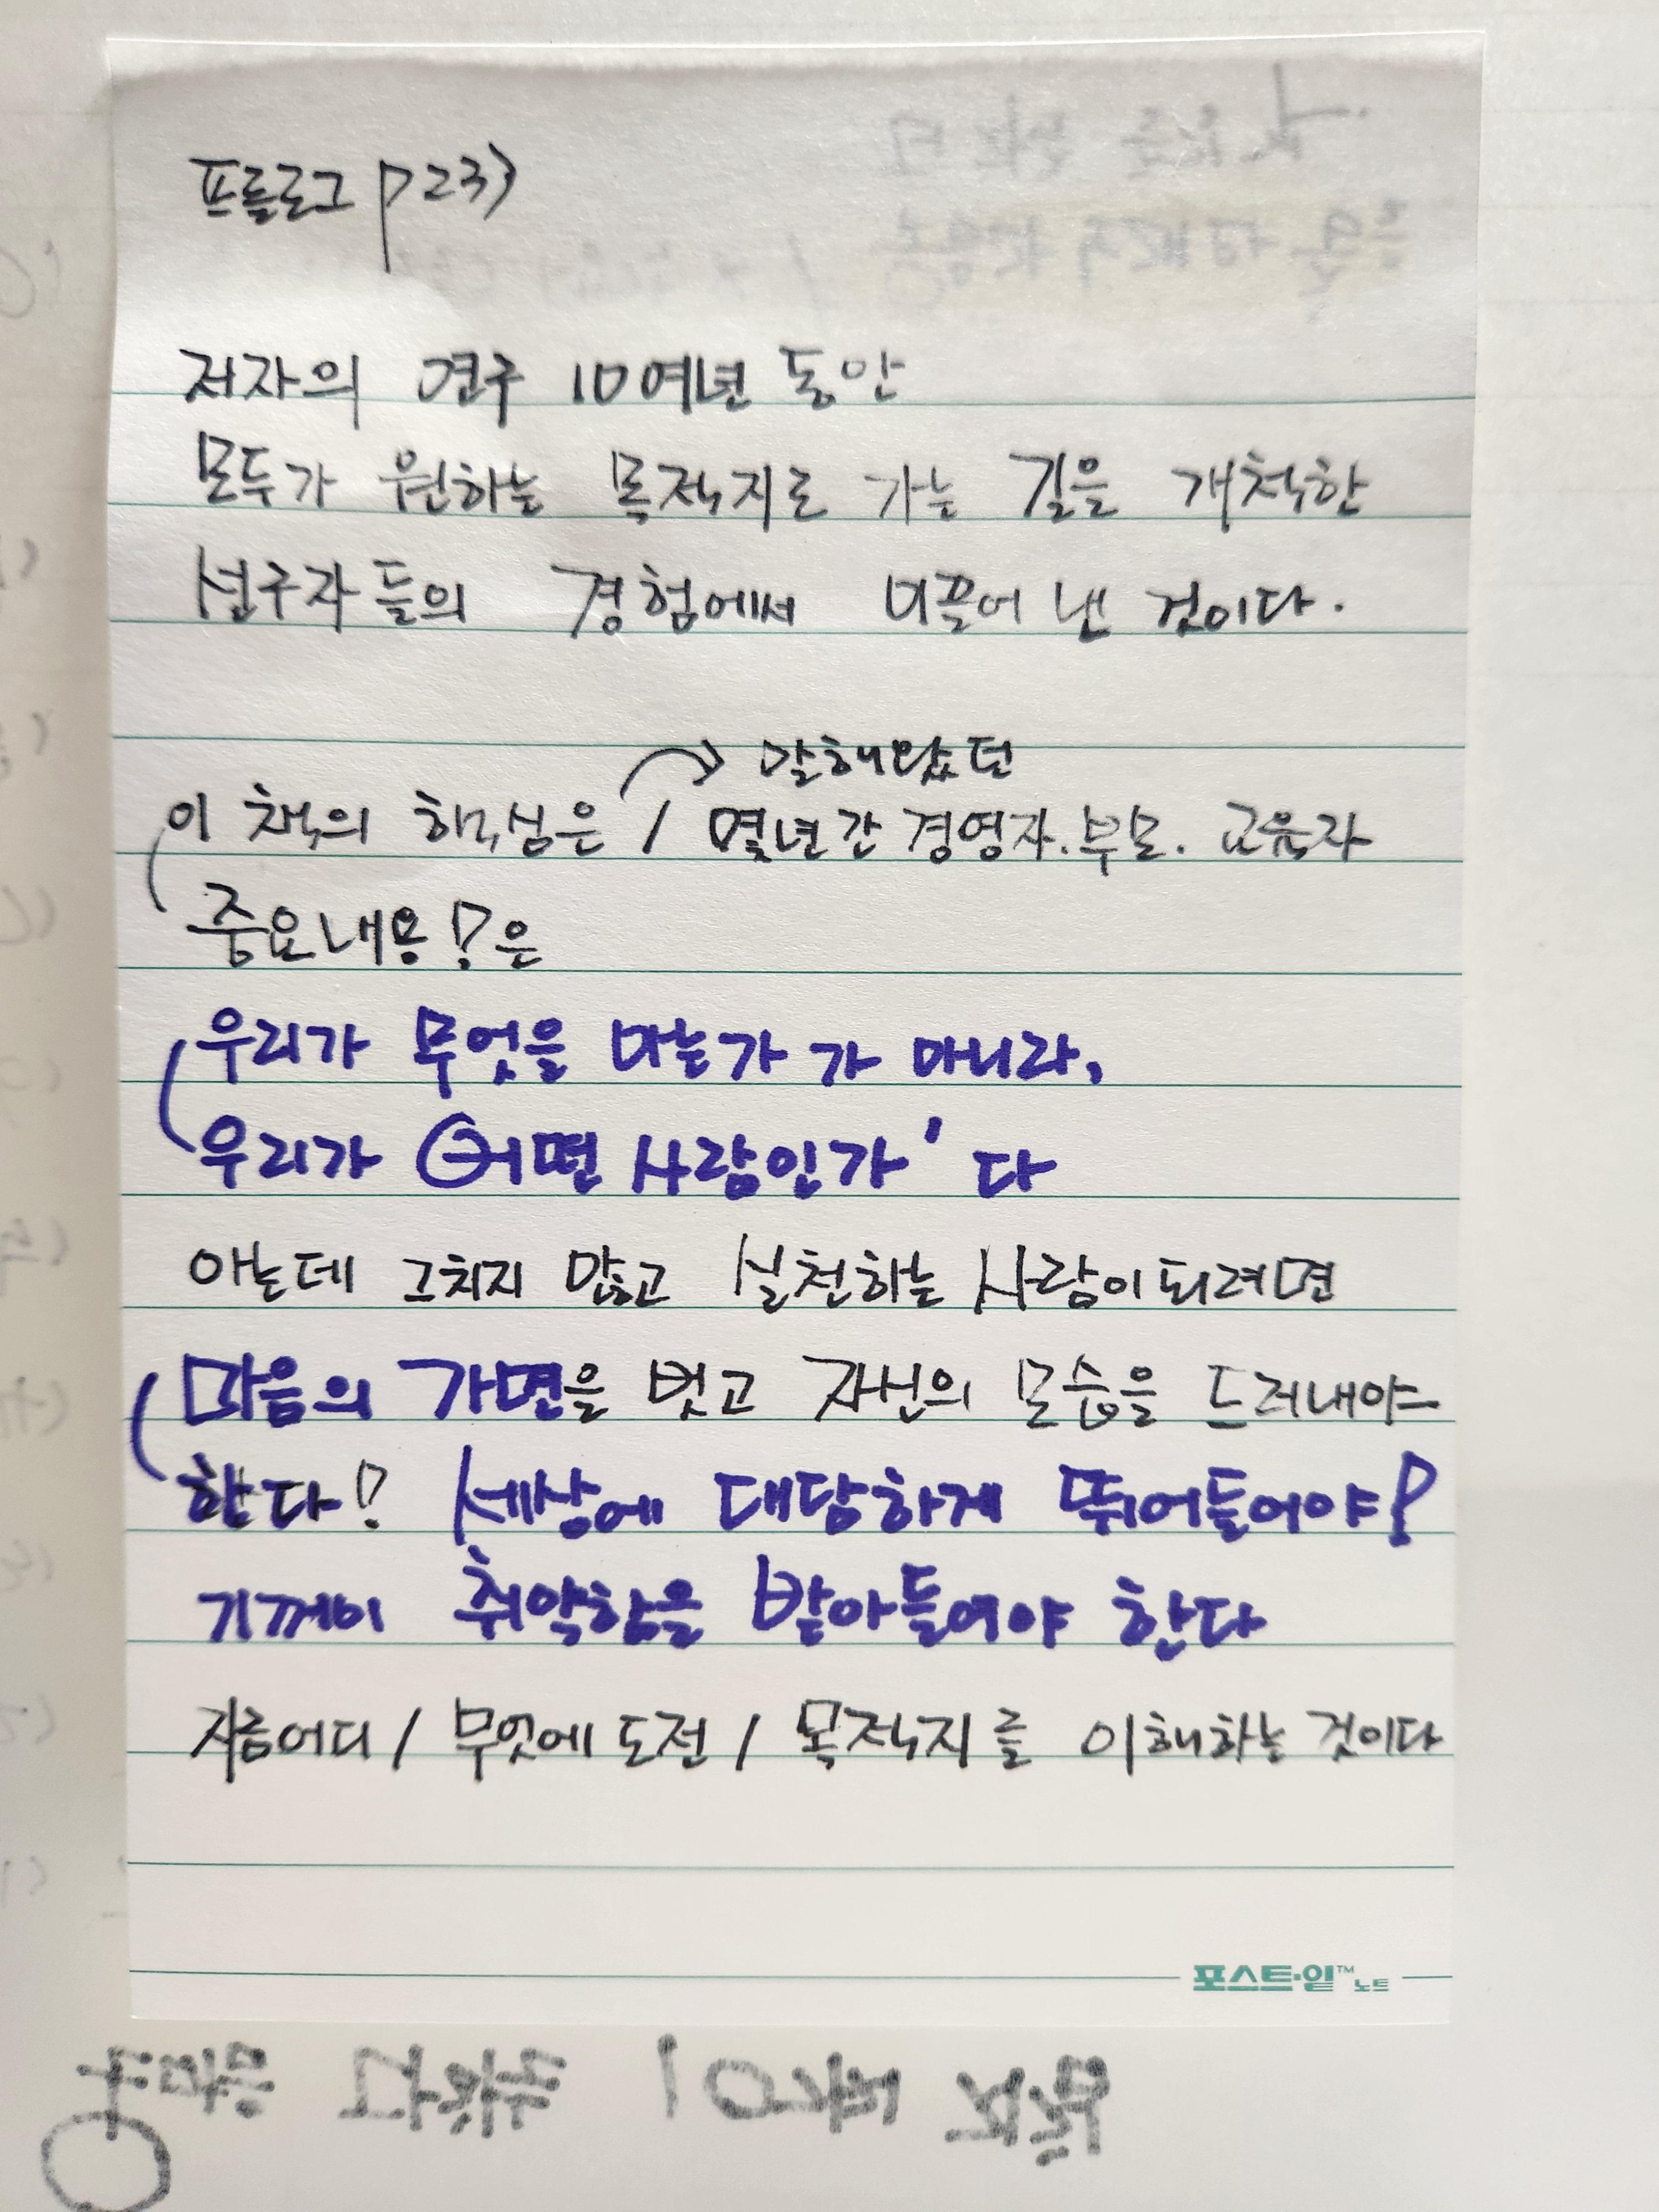 프롤로그 P23)
저자의 연구 10여년 동안
모두가 원하는 목적지로 가는 길을 개척한
선구자들의 경험에서 이끌어 낸 것이다.
말해왔던
이 책의 핵심은 / 몇년간 경영자.부모. 교육자
중요내용!은
우리가 무엇을 아는가 가 아니라,
우리가 어떤 사람인가' 다
아는데 그치지 않고 실천하는 사람이 되려면
마음의 가면을 벗고 자신의 모습을 드러내야
한다! 세상에 대담하게 뛰어들어야!
기꺼이 취약함을 받아들여야 한다
지금어디 / 무엇에 도전 / 목적지를 이해하는 것이다
포스트·잇™ 노트